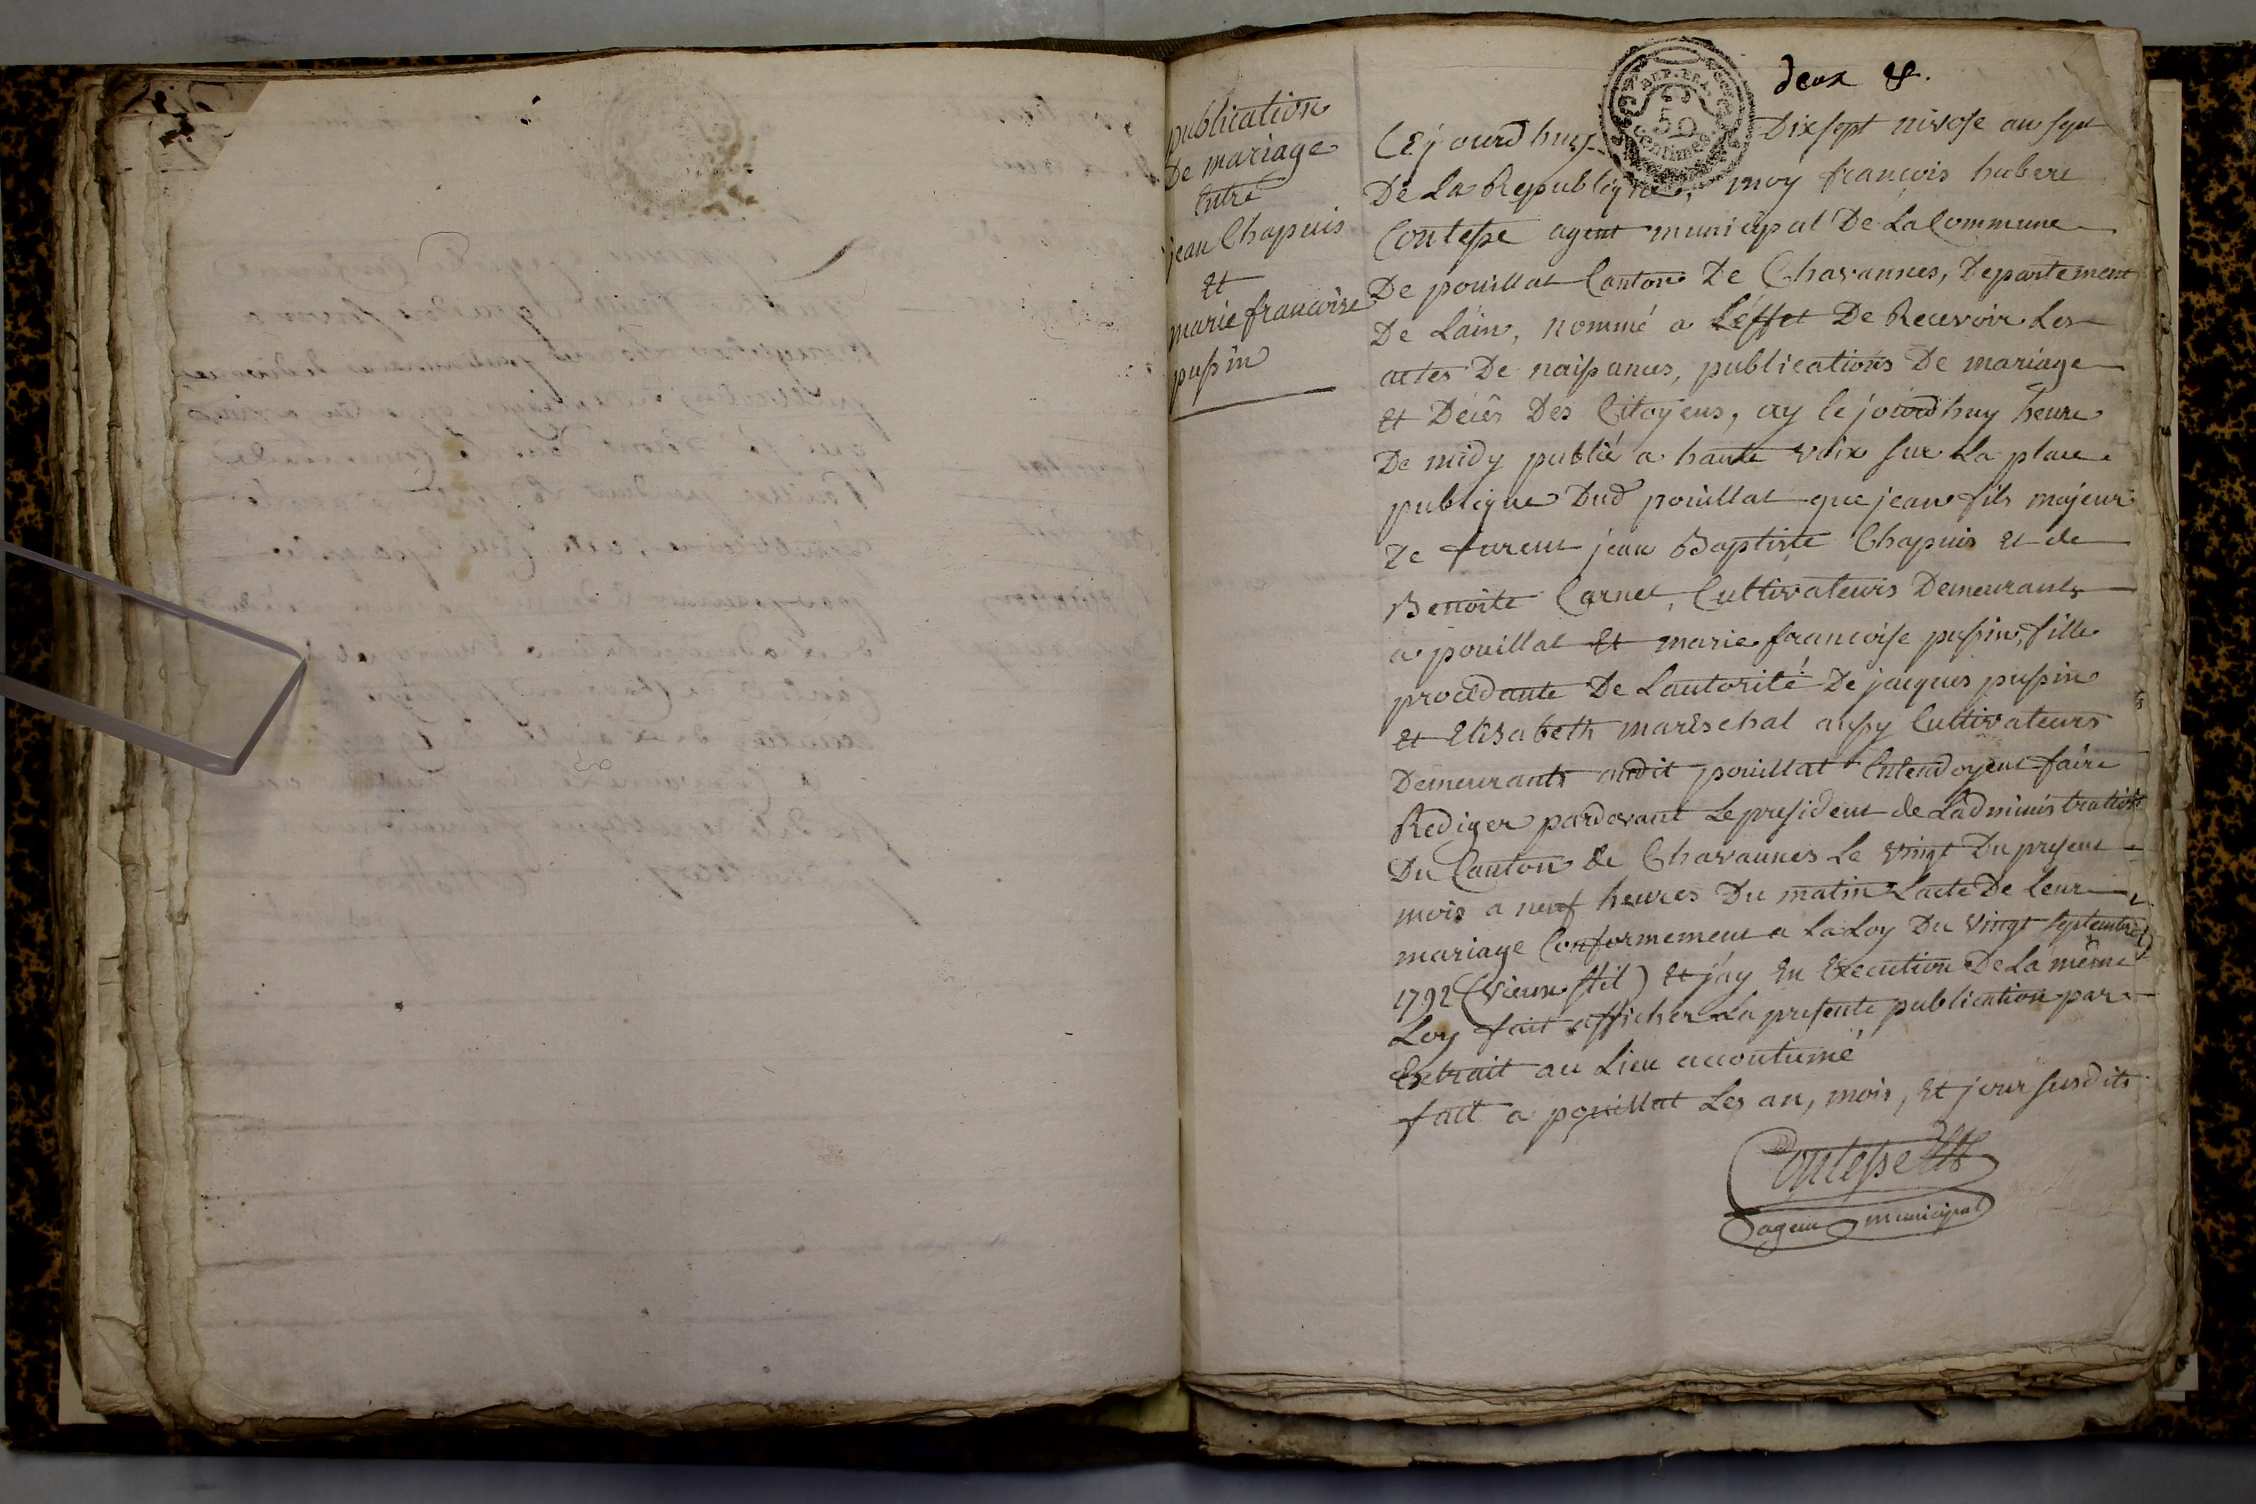 publication
De mariage
Entre
jean Chapuis
Et
marie francoise
pussin
deux
REP. FRA.
50
Centimes
Cejourdhuy Dixsept nivose an sept
De La Republique, moy françois hubert
Contesse agent municipal De La Commune
De pouillat Canton De Chavannes, Departement
De Lain, nommé a Léffet De Recevoir Les
actes De naissances, publications De mariage
Et Décès Des Citoyens, ay cejourdhuy heure
De midy publié a haute voix sur La place
publique Dud pouillat que jean fils majeur
De furent jean Baptiste Chapuis Et de
Benoite Carnet, Cultivateurs Demeurants
a pouillat Et marie francoise pussin, fille
procédante De Lautorité De jacques pussin
Et Elisabeth mareschal aussy Cultivateurs
Demeurants audit pouillat Entendoyent faire
Rediger pardevant Le president de Ladministration
Du Canton de Chavannes Le vingt Du present
mois a neuf heures Du matin Lacte De Leur
mariage Conformement a La Loy Du vingt septembre
1792 (vieux stil) Et j'ay En Execution De La même
Loy fait afficher La presente publication par
Extrait au Lieu accoutumé
fait a pouillat Les an, mois, Et jour susdits
Contesse
agent municipal